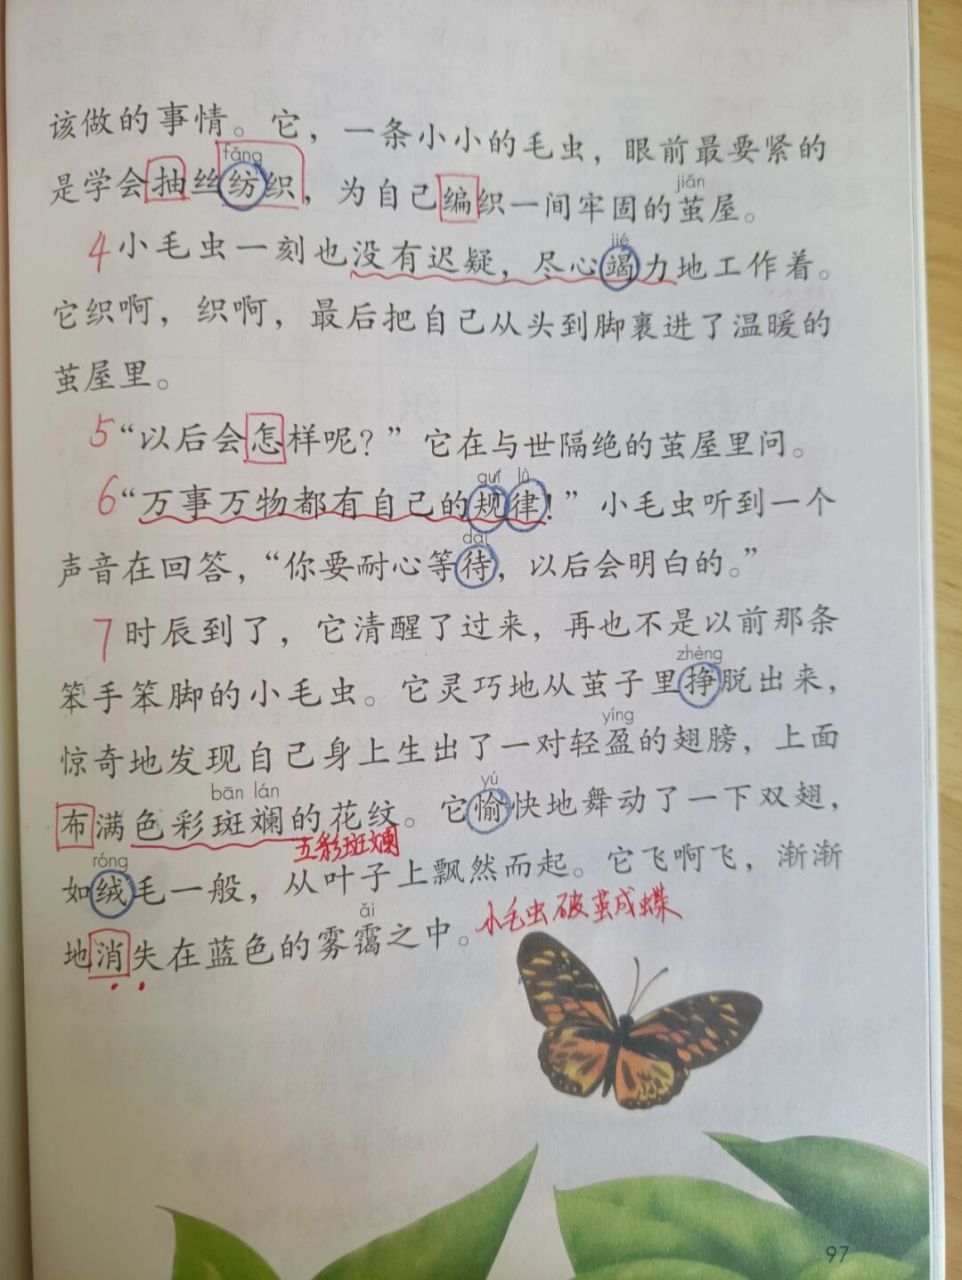 该做的事情。它，一条小小的毛虫，眼前最要紧的
fǎng
是学会抽丝纺织，为自己编织一间牢固的茧屋。
jiǎn
4 小毛虫一刻也没有迟疑，尽心竭力地工作着。
jié
它织啊，织啊，最后把自己从头到脚裹进了温暖的
茧屋里。
5 “以后会怎样呢？”它在与世隔绝的茧屋里问。
guī lǜ
6 “万事万物都有自己的规律！”小毛虫听到一个
dài
声音在回答，“你要耐心等待，以后会明白的。”
7 时辰到了，它清醒了过来，再也不是以前那条
zhèng
笨手笨脚的小毛虫。它灵巧地从茧子里挣脱出来，
yíng
惊奇地发现自己身上生出了一对轻盈的翅膀，上面
bān lán yú
布满色彩斑斓的花纹。它愉快地舞动了一下双翅，
五彩斑斓
róng
如绒毛一般，从叶子上飘然而起。它飞啊飞，渐渐
ǎi
地消失在蓝色的雾霭之中。
小毛虫破茧成蝶
97